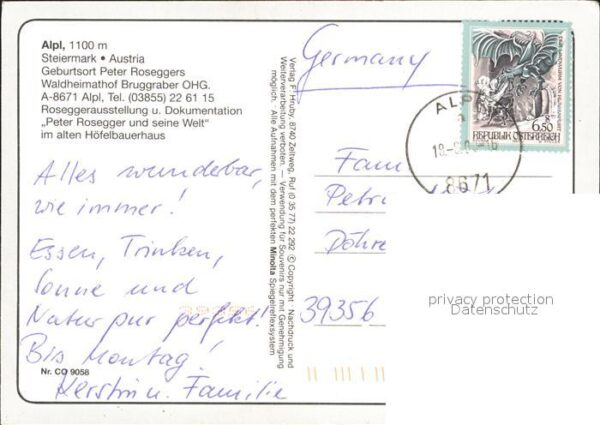 Alpl, 1100 m
Steiermark • Austria
Geburtsort Peter Roseggers
Waldheimathof Bruggraber OHG.
A-8671 Alpl, Tel. (03855) 22 61 15
Roseggerausstellung u. Dokumentation
„Peter Rosegger und seine Welt"
im alten Höfelbauerhaus
Alles wunderbar,
wie immer!
Essen, Trinken,
Sonne und
Natur pur perfekt!
Bis Montag!
Kerstin u. Familie
Nr. CO 9058
Verlag F. Hruby, 8740 Zeltweg, Ruf (0 35 77) 22 292 © Copyright Nachdruck und
Weiterverarbeitung verboten. — Verwendung für Souvenirs nur mit Genehmigung
möglich. Alle Aufnahmen mit dem perfekten Minolta Spiegelreflexsystem
Germany
6.50
REPUBLIK ÖSTERREICH
ALPL
8671
Fam
Petr
Döhre
39356
privacy protection
Datenschutz